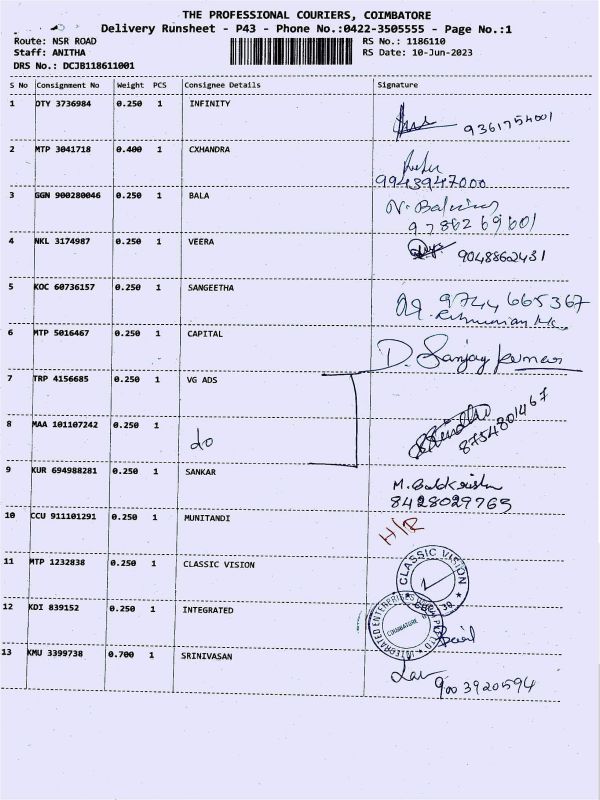 THE PROFESSIONAL COURIERS, COIMBATORE
Delivery Runsheet - P43 - Phone No.:0422-3505555 - Page No.:1
Route: NSR ROAD RS No.: 1186110
Staff: ANITHA RS Date: 10-Jun-2023
DRS No.: DCJB118611001
S No Consignment No Weight PCS Consignee Details Signature
1 OTY 3736984 0.250 1 INFINITY
9361754001
2 MTP 3041718 0.400 1 CXHANDRA
9943947000
3 GGN 900280046 0.250 1 BALA
9786269601
4 NKL 3174987 0.250 1 VEERA
9048862431
5 KOC 60736157 0.250 1 SANGEETHA
9744665367
6 MTP 5016467 0.250 1 CAPITAL
D. Sanjay kumar
7 TRP 4156685 0.250 1 VG ADS
8 MAA 101107242 0.250 1
do 8754801467
9 KUR 694988281 0.250 1 SANKAR
8428029769
10 CCU 911101291 0.250 1 MUNITANDI
H/R
11 MTP 1232838 0.250 1 CLASSIC VISION
CLASSIC VISION
12 KDI 839152 0.250 1 INTEGRATED
COIMBATORE
13 KMU 3399738 0.700 1 SRINIVASAN
9003920594